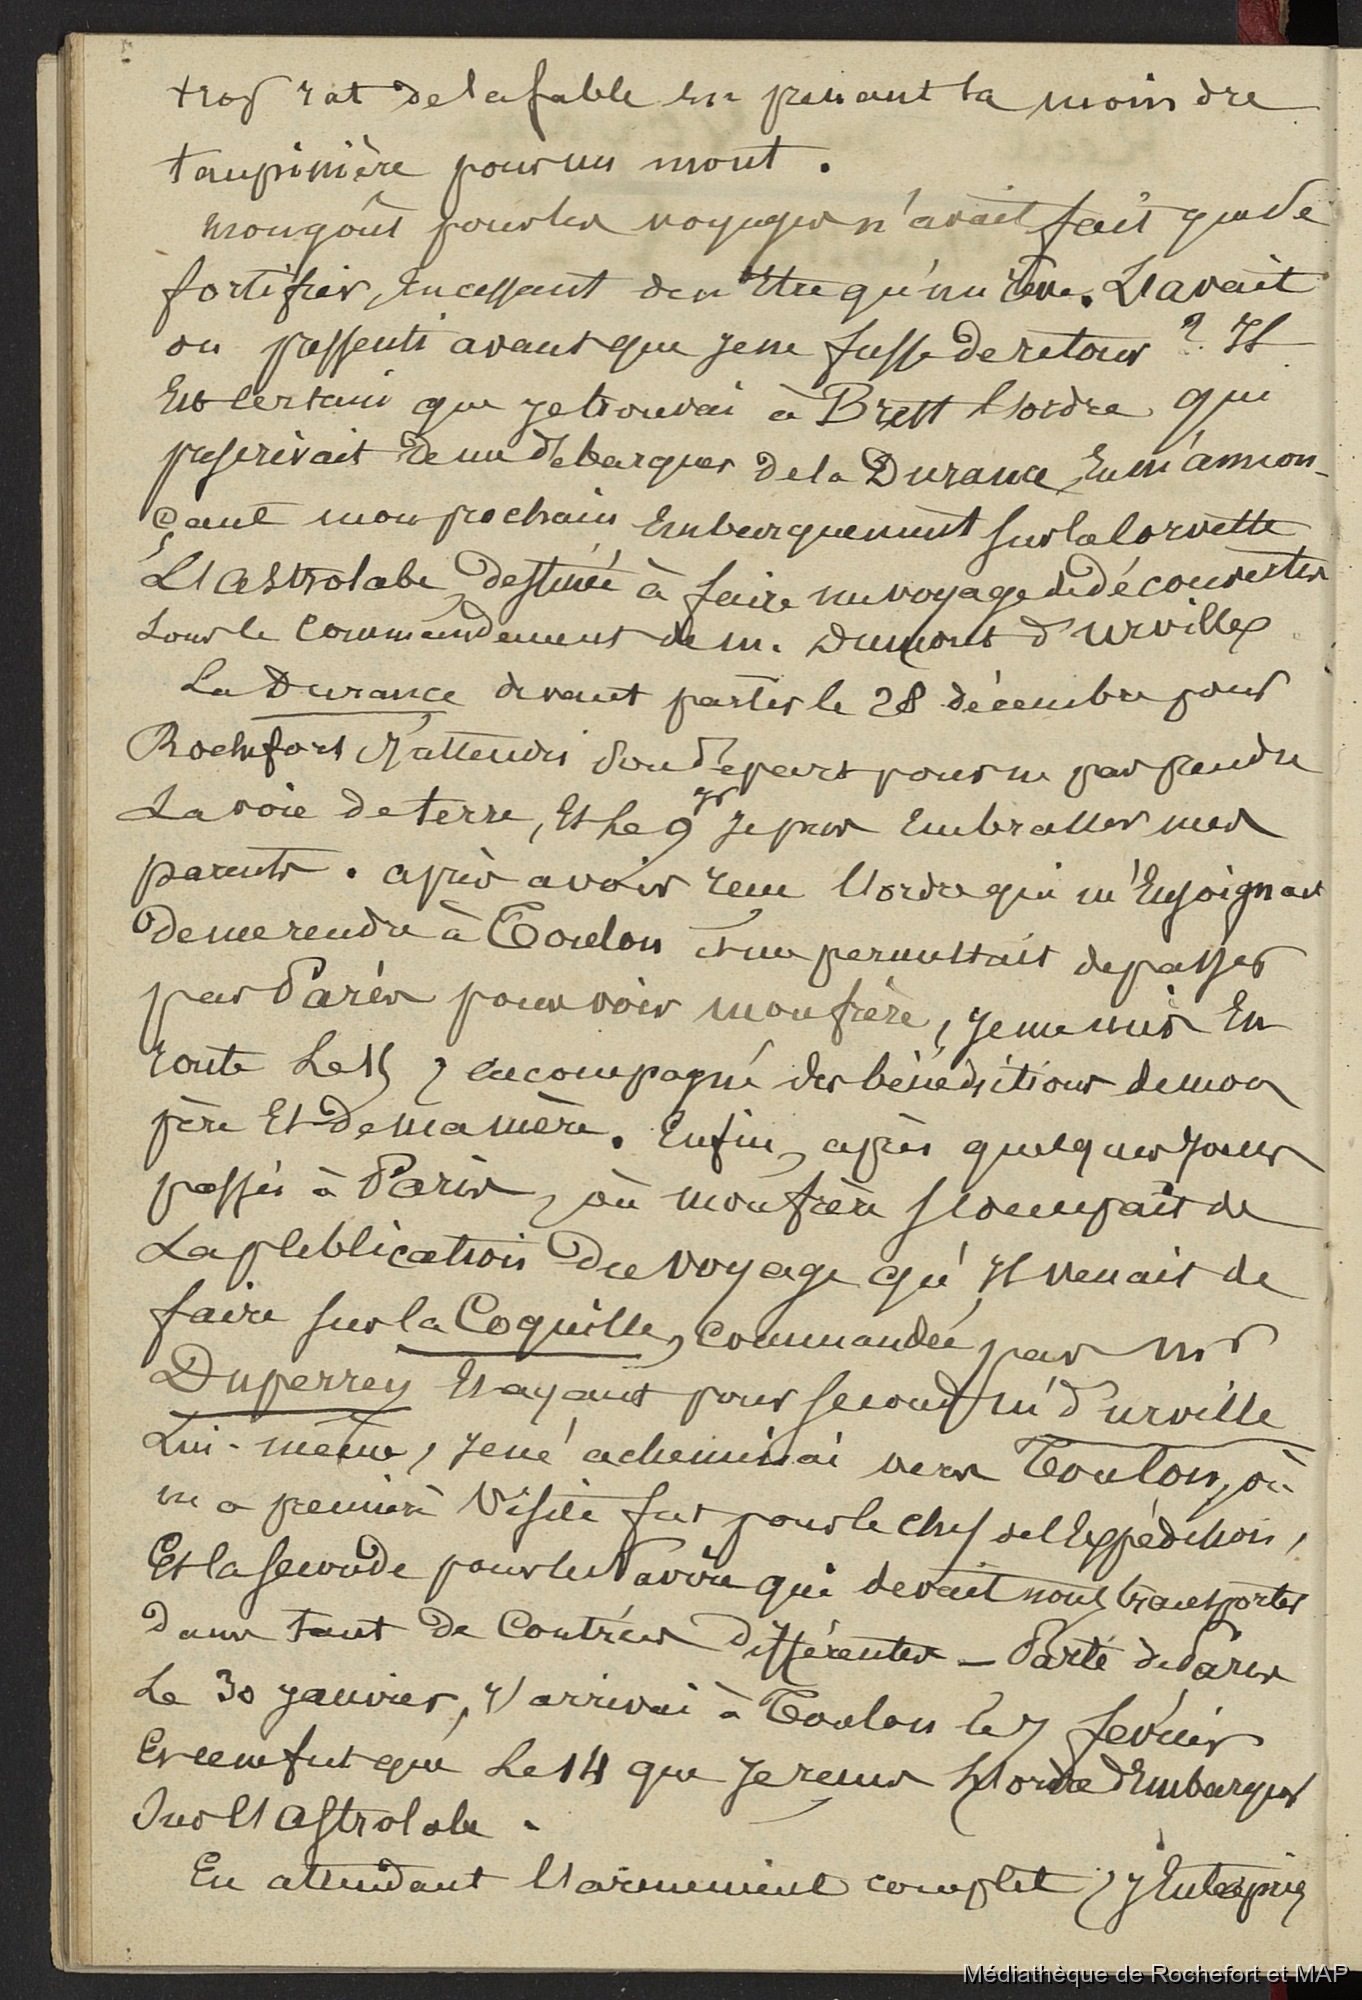 trop rat de la fable en prenant la moindre
taupinière pour un mont.
Mon goût pour les voyages n'avait fait que se
fortifier, en cessant de n'être qu'un rêve. L'avait
on pressenti avant que je ne fusse de retour ? Il
Est certain que je trouvai à Brest l'ordre qui
prescrivait de me débarquer de la Durance, en m'annon-
çant mon prochain Embarquement sur la Corvette
L'Astrolabe, destinée à faire un voyage de découvertes
sous le Commandement de M. Dumont d'urville
La Durance devant partir le 28 décembre pour
Rochefort, J'attendis son départ pour ne pas prendre
La voie de terre, Et Le 9 Jr Je pus Embrasser mes
parents. après avoir reçu l'ordre qui m'Enjoignait
de me rendre à Toulon et me permettait de passer
par Paris pour voir mon frère, je me mis En
route Le 15, accompagné des bénédictions de mon
père Et de ma mère. Enfin, après quelques jours
passés à Paris, où mon frère s'occupait de
La publication du voyage qu'Il venait de
faire sur la Coquille, commandée par Mr
Duperrey Et ayant pour second M. d'urville
Lui-même, je m'acheminai vers Toulon, où
ma première Visite fut pour le chef de l'Expédition,
Et la seconde pour le Navire qui devait nous transporter
dans tant de Contrées différentes – Parti de Paris
Le 30 janvier, J'arrivai à Toulon le 7 février
Et ce ne fut que Le 14 que je reçus L'ordre d'Embarquer
sur l'Astrolabe.
En attendant l'armement complet, j'Entrepris